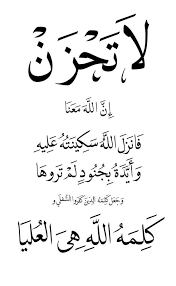 لَا تَحْزَنْ
إِنَّ اللَّهَ مَعَنَا
فَانزَلَ اللَّهُ سَكِينَتُهُ عَلَيهِ
وَأَيَّدَهُ بِجُنُودٍ لَمْ تَرَوهَا
وَ جَعَلَ كَلِمَةَ الَّذِينَ كَفَرُوا السُّفلَى وَ
كَلِمَهُ اللَّهِ هِيَ العُليَا